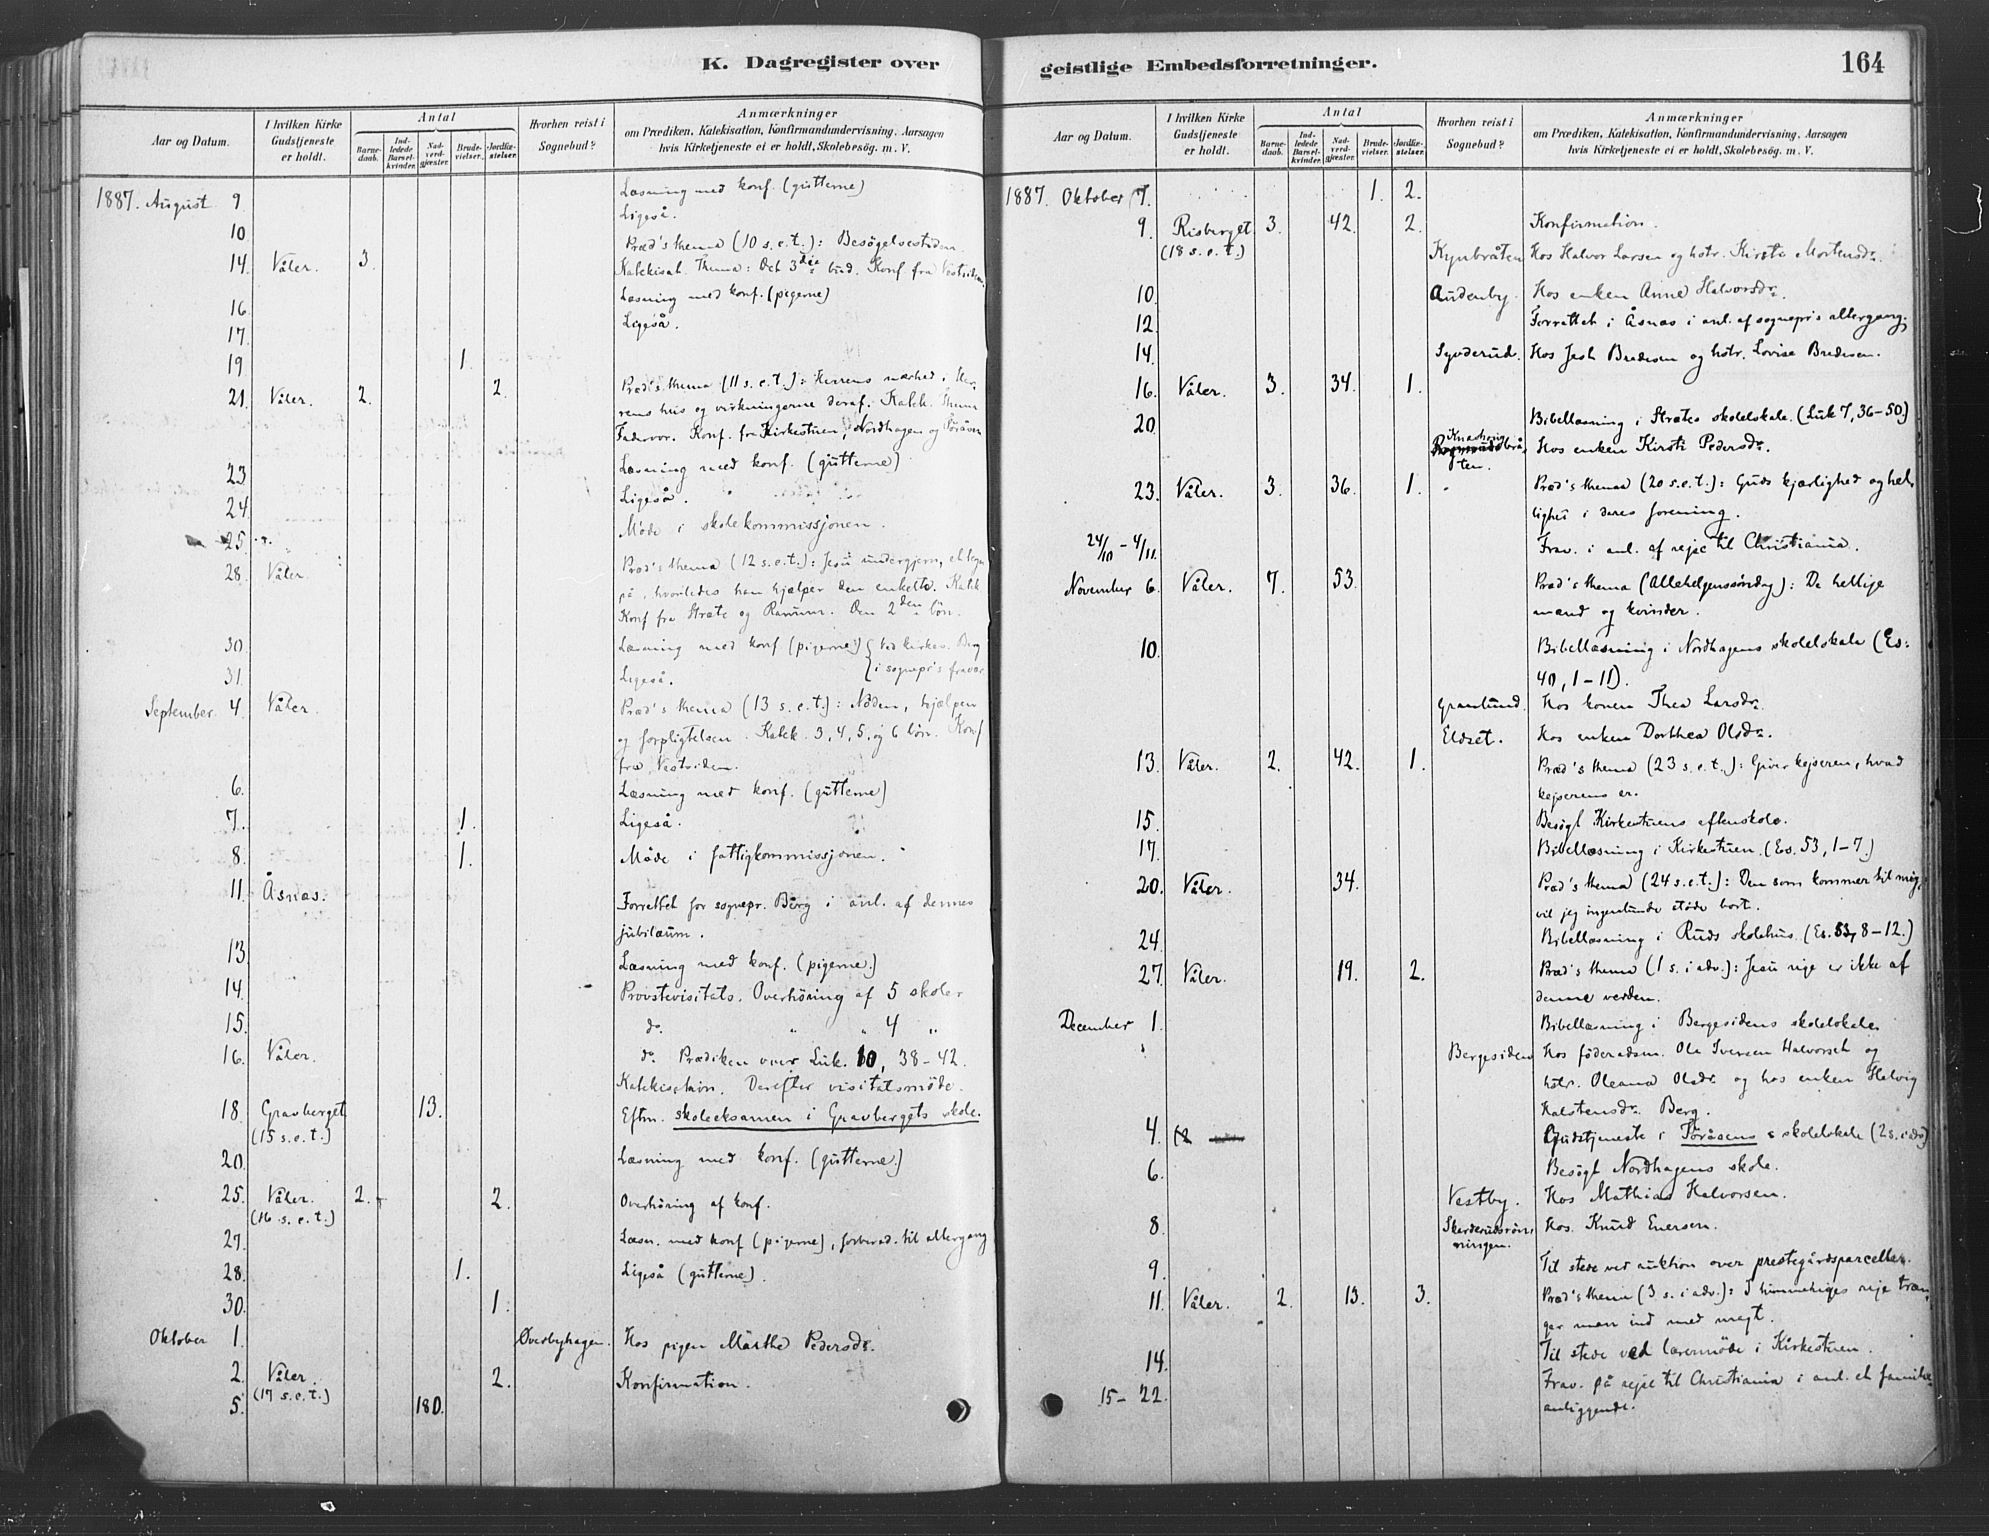 K. Dagregister over
Aar og Datum.
I hvilken Kirke Gudstjeneste er holdt.
Antal
Barnedaab.
Indledede Barselkvinder.
Nadverdgjæster.
Brudevielser.
Jordfæstelser.
Hvorhen reist i Sognebud?
Anmærkninger
om Prædiken, Katekisation, Konfirmandundervisning, Aarsagen
hvis Kirketjeneste ei er holdt, Skolebesøg. m. V.
1887. August 9 Læsning med konf. (gutterne)
10 Ligeså.
14 Våler. 3. Præd's thema (10 s.e.t.): Besøgelsestiden.
Katekisat. Thema: Det 3die bud. Konf. fra Vestsiden.
16. Læsning med konf. (pigerne)
17. Ligeså.
19 1.
21. Våler. 2. 2. Præd's thema (11 s.e.t.): Herrens nærhed i Her-
rens hus og virkningerne deraf. Katek. Thema
Fadervor. Konf. fra Kirkestuen, Nordhagen og Toråsen
23 Læsning med konf. (gutterne)
24. Ligeså.
25. Møde i skolekommissjonen.
28. Våler. Præd's thema (12 s.e.t.): Jesu undergjern, et tegn
på, hvorledes han hjælper den enkelte. Katek.
Konf fra Stræte og Ranum. Den 2den bøn.
30. Læsning med konf (pigerne) { ved kirkes. Berg
31. Ligeså. { i sognepr's fravær
September 4. Våler. Præd's thema (13 s.e.t.): Nøden, hjælpen
og forpligtelsen. Katek. 3, 4, 5, og 6 bøn. Konf
fra Vestsiden.
6. Læsning med konf. (gutterne)
7. 1. Ligeså.
8. 1. Møde i fattigkommissjonen.
11. Åsnæs. Forrettet for sognepr. Berg i anl. af dennes
jubilæum.
13. Læsning med konf. (pigerne.)
14. Provstevisitats. Overhøring af 5 skoler
15. do. " " 4 "
16. Våler. do. Prædiken over Luk. 10, 38-42.
Katekisation. Derefter visitatsmøde.
18. Gravberget 13. Eftm. skoleeksamen i Gravbergets skole.
(15 s.e.t.)
20. Læsning med konf. (gutterne.)
25. Våler. 2. 2. Overhøring af konf.
(16 s.e.t.)
27. Læsn. med konf (pigerne), forbered. til altergang
28. 1. Ligeså (gutterne).
30. 1.
Oktober 1. Overbyhagen. Hos pigen Marthe Pedersdr.
2. Våler. 2. Konfirmation.
(17 s.e.t.)
5. 180.
geistlige Embedsforretninger.
164
Aar og Datum.
I hvilken Kirke Gudstjeneste er holdt.
Antal
Barnedaab.
Indledede Barselkvinder.
Nadverdgjæster.
Brudevielser.
Jordfæstelser.
Hvorhen reist i Sognebud?
Anmærkninger
om Prædiken, Katekisation, Konfirmandundervisning, Aarsagen
hvis Kirketjeneste ei er holdt, Skolebesøg. m. V.
1887. Oktober 7. 1. 2.
9. Risberget 3. 42. 2. Konfirmation.
(18 s.e.t.) Kynbråten Hos Halvor Larsen og hstr. Kirsti Mortensdr.
10. Audenby. Hos enken Anne Halvorsdr.
12. Forrettet i Åsnæs i anl. af sognepr's altergang.
14. Hos Bredesen og hstr. Lovise Bredesen.
16. Våler. 3. 34. 1.
20 Bibellæsning i Strætes skolelokale. (Luk 7, 36-50.)
Hos enken Kirsti Pedersdr.
23. Våler. 3. 36. 1. Præd's thema (20 s.e.t.): Guds kjærlighed og hel-
lighed i deres forening.
24/10 - 4/11. Frav. i anl. af rejse til Christiania.
November 6. Våler. 7. 53. Præd's thema (Allehelgenssøndag): De hellige
mænd og kvinder.
10. Bibellæsning i Nordhagens skolelokale (Es.
40, 1-11).
Granlund. Hos konen Thea Larsdr.
Eldset. Hos enken Dorthea Olsdr.
13. Våler. 2. 42. 1. Præd's thema (23 s.e.t.): Giver kejseren, hvad
kejserens er.
15. Besøgt Kirkestuens aftenskole.
17. Bibellæsning i Kirkestuen. (Es. 53, 1-7.)
20. Våler. 34. Præd's thema (24 s.e.t.): Den som kommer til mig,
vil jeg ingenlunde støde bort.
24. Bibellæsning i Ruds skolehus. (Es. 53, 8-12.)
27. Våler. 19. 2. Præd's thema (1 s. i adv.): Jesu rige er ikke af
denne verden.
December 1. Bibellæsning i Bergesidens skolelokale
Bergesiden Hos føderådsm. Ole Iversen Halvorset og
hstr. Oleana Olsdr. og hos enken Helvig
Halstensdr. Berg.
4. Gudstjeneste i Toråsens skolelokale (2 s. i adv.)
6. Besøgt Nordhagens skole.
Vestby. Hos Mathias Halvorsen.
8. Skarderudsrønningen. Hos Knud Enersen.
9. Til stede ved auktion over prestegårdsparceller.
11. Våler. 2. 13. 3. Præd's thema (3 s. i adv.): I himmeriges rige træn-
ger man ind med magt.
14. Til stede ved læremøde i Kirkestuen.
15-22. Frav. på rejse til Christiania i anl. et familie-
anliggende.